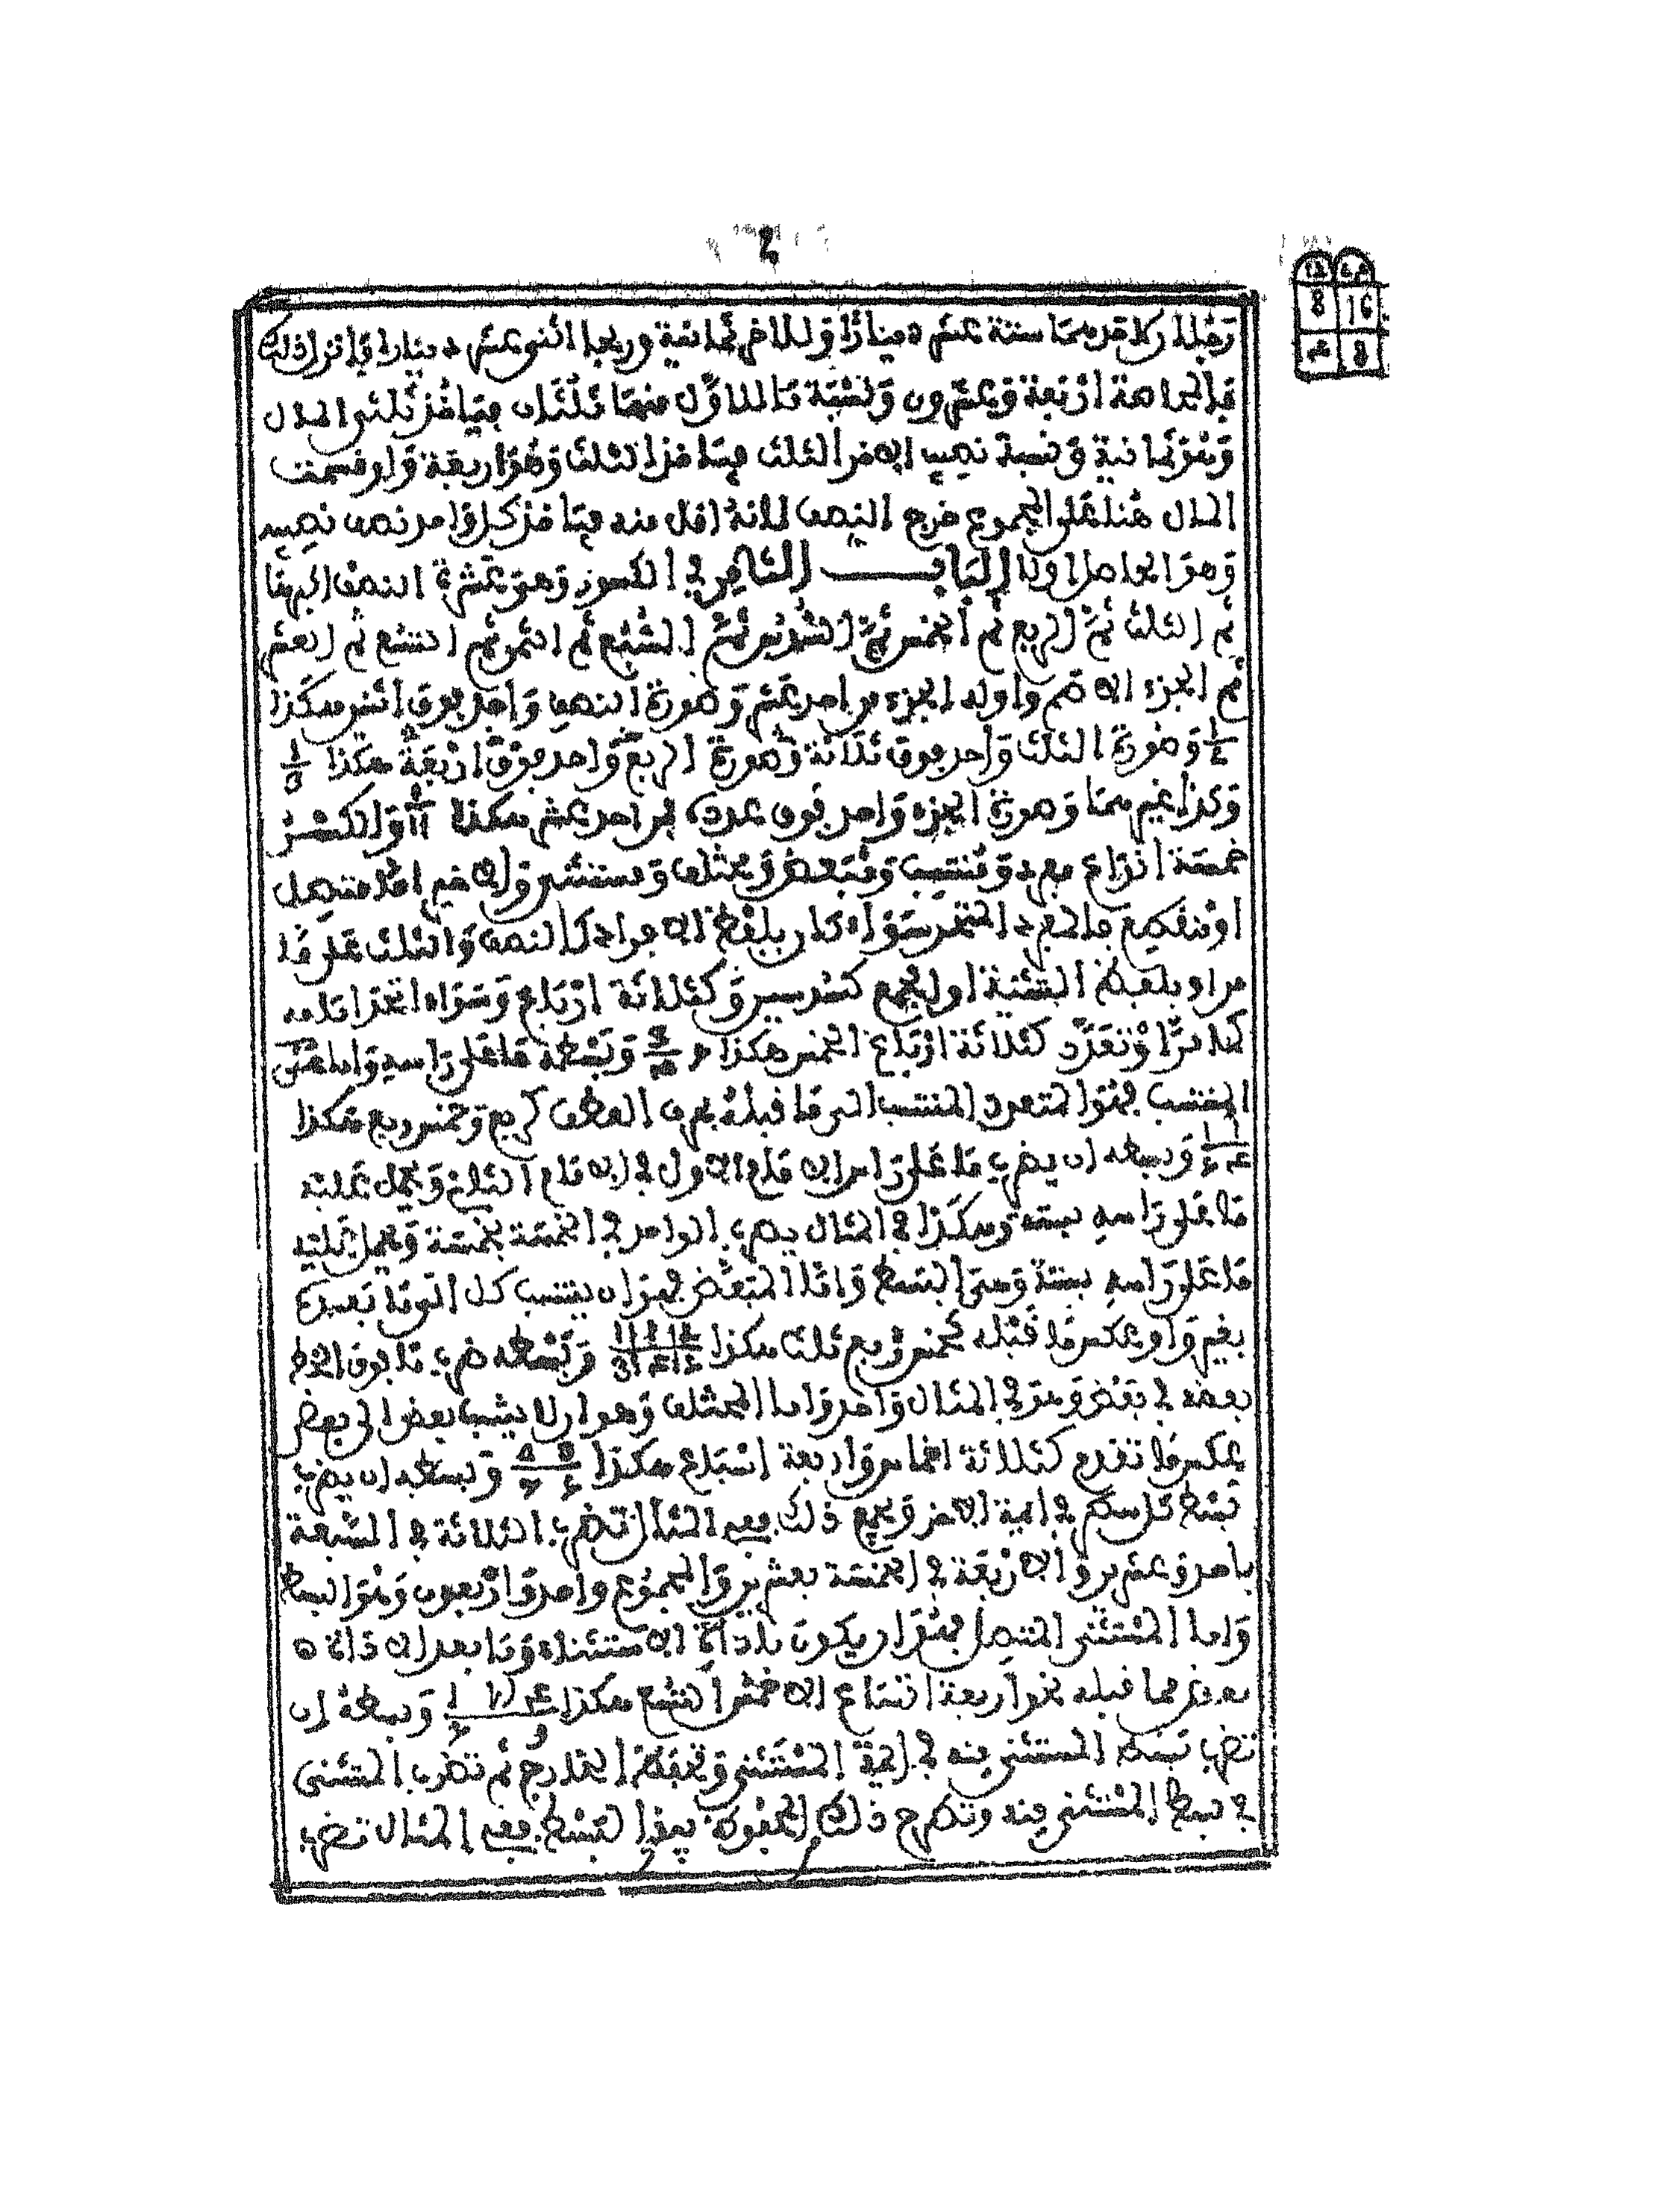 رجلان لاحدهما ستة عشر دينارا وللاخر ثمانية وربحا اثنى عشر دينارا فانزل ذلك
فالجماعة اربعة وعشرون ونسبة ما للاول منها ثلثان فياخذ ثلثى المال
وهو ثمانية ونسبة نصيب الاخر الثلث فياخذ الثلث وهو اربعة ولو قسمت
المال هنا على المجموع خرج النصف لانه اقل منه فياخذ كل واحد نصف نصيبه
وهو الحاصل اولا البـــاب الثامن في الكسور وهو عشرة النصف اكبرها
ثم الثلث ثم الربع ثم الخمس ثم السدس ثم السبع ثم الثمن ثم التسع ثم العشر
ثم الجزء الاصم واوله الجزء من احد عشر وصورة النصف واحد فوق اثنين هكذا
وصورة الثلث واحد فوق ثلاثة وصورة الربع واحد فوق اربعة هكذا
وكذا غيرهما وصورة الجزء واحد فوق عدده من احد عشر هكذا والكسر
خمسة انواع مفرد ومنتسب ومبعض ومختلف ومستثنى والاخير اما متصل
او منقطع فالمفرد المتحد سواء كان بلفظ الافراد كالنصف والثلث على ما
مر او بلفظ التثنية او الجمع كسدسين وكثلاثة ارباع وسواء اتحد امامه
كما مر او تعدد كثلاثة ارباع الخمس هكذا وبسطه ما على راسه واما
المنتسب فهو المتعدد المنتسب الى ما قبله بحرف العطف كربع وخمس وربع هكذا
وبسطه ان يضرب ما على راس الامام الاول في الامام الثانى ويحمل عليه
ما على راسه بسته وهكذا في المثال يضرب الواحد في الخمسة بخمسة ويحمل عليه
ما على راسه بستة وهي البسط واما المبعض فهو ان ينسب كل الى ما بعده
بغير واو عكس ما قبله كخمس ربع ثلث هكذا وبسطه ضرب ما فوق الخط
بعضه في بعض وهو في المثال واحد واما المختلف وهو ان لا ينسب بعض الى بعض
عكس ما تقدم كثلاثة اخماس واربعة اسباع هكذا وبسطه ان يضرب
بسط كل سطر في ايمة الاخر ويجمع ذلك ففى المثال تضرب الثلاثة في السبعة
باحد وعشرين والاربعة في الخمسة بعشرين والمجموع واحد واربعون وهو البسط
واما المستثنى المتصل فهو ان يكون باداة الاستثناء وما بعد الاداة
بعض مما قبله نحو اربعة اتساع الا خمس التسع هكذا وبسطه ان
تضرب بسط المستثنى منه في ايمة المستثنى وتحفظ الخارج ثم تضرب المستثنى
في بسط المستثنى منه وتطرح ذلك من المحفوظ يبق البسط ففى المثال تضرب